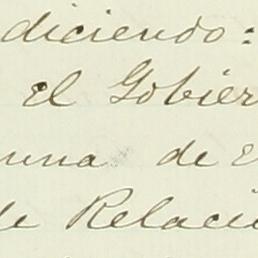 diciendo:
el Gobier
una de e
de Relacio